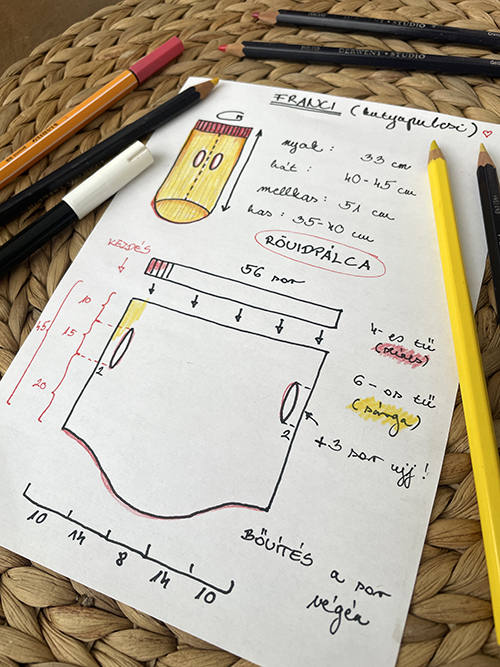 DERWENT · STUDIO
DERWENT · STUDIO
FRANCI (kutyapulcsi)
nyak : 33 cm
hát : 40-45 cm
mellkas : 51 cm
has : 35-40 cm
RÖVIDPÁLCA
KEZDÉS
56 sor
10
45
15
20
2
2
4-es tű
(piros)
6-os tű
(sárga)
+3 sor ujj !
10 14 8 14 10
BŐVÍTÉS a sor
végén